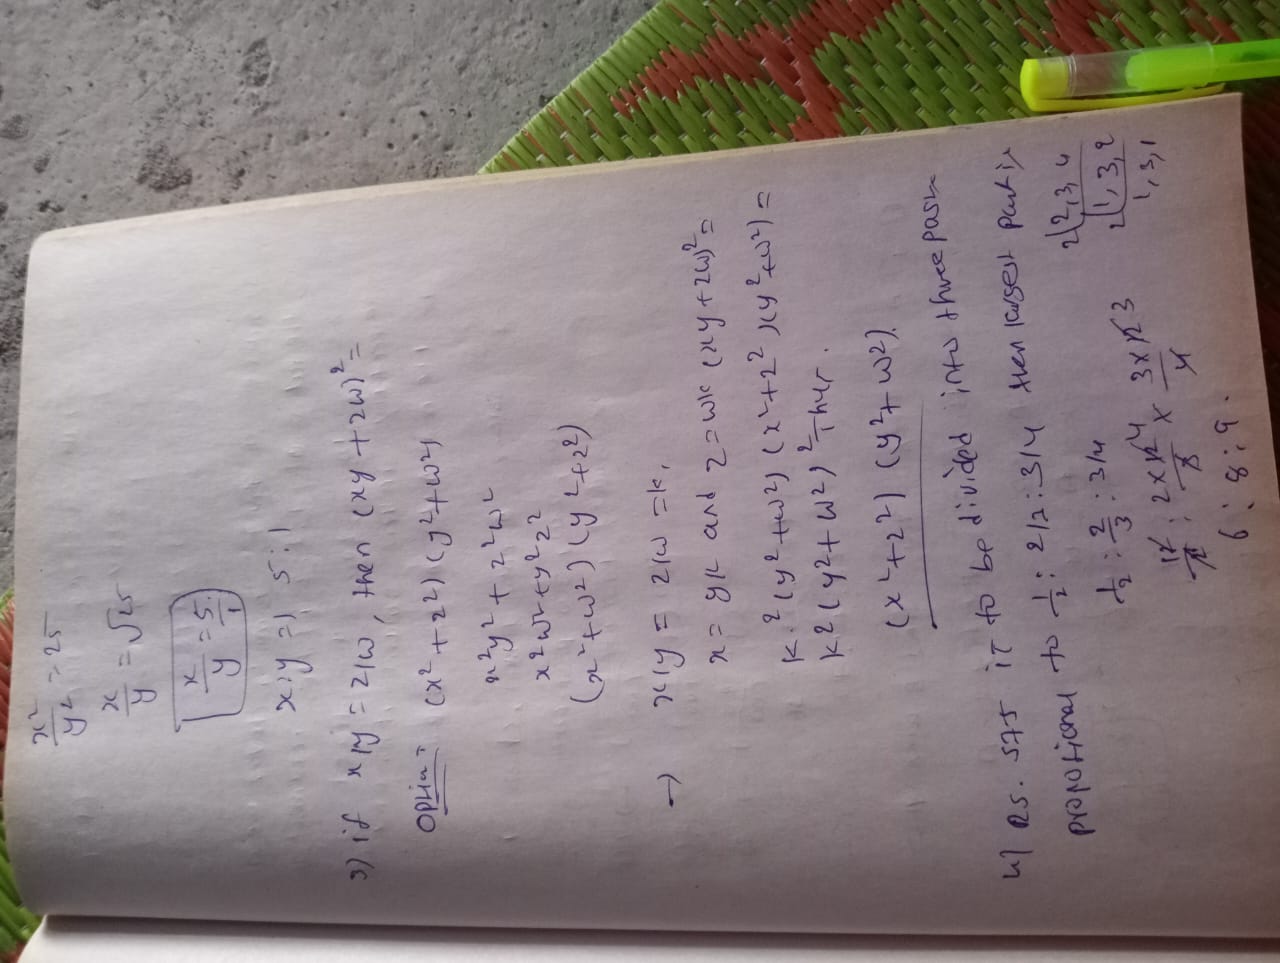 x²/y² = 25
x/y = √25
x/y = 5/1
x:y = 1 5:1
3) if x/y = z/w, then (xy + zw)² =
option = (x² + z²) (y² + w²)
x²y² + z²w²
x²w² + y²z²
(x² + w²) (y² + z²)
→ x/y = z/w = k,
x = yk and z = wk (xy + zw)² =
k² (y² + w²) (x² + z²) (y² + w²) =
k² (y² + w²)²
(x² + z²) (y² + w²).
4) Rs. 575 is to be divided into three
propotional to 1/2 : 2/2 : 3/4 then largest part is
1/2 : 2/3 : 3/4
2|2,3,4
2|1,3,2
1,3,1
12/2 : 2x12 4/3 x 3x12 3/4
6 : 8 : 9.